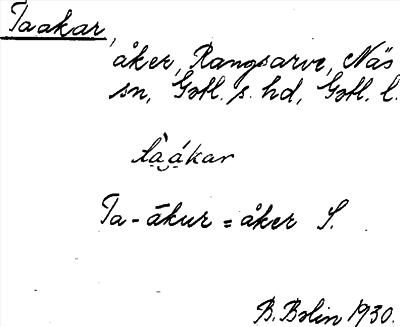 Taakar,
åker, Rangsarve, Näs
sn, Gotl. s. hd, Gotl. l.
tà̤á̤kar
Ta-ākur = åker S.
B. Bolin 1930.